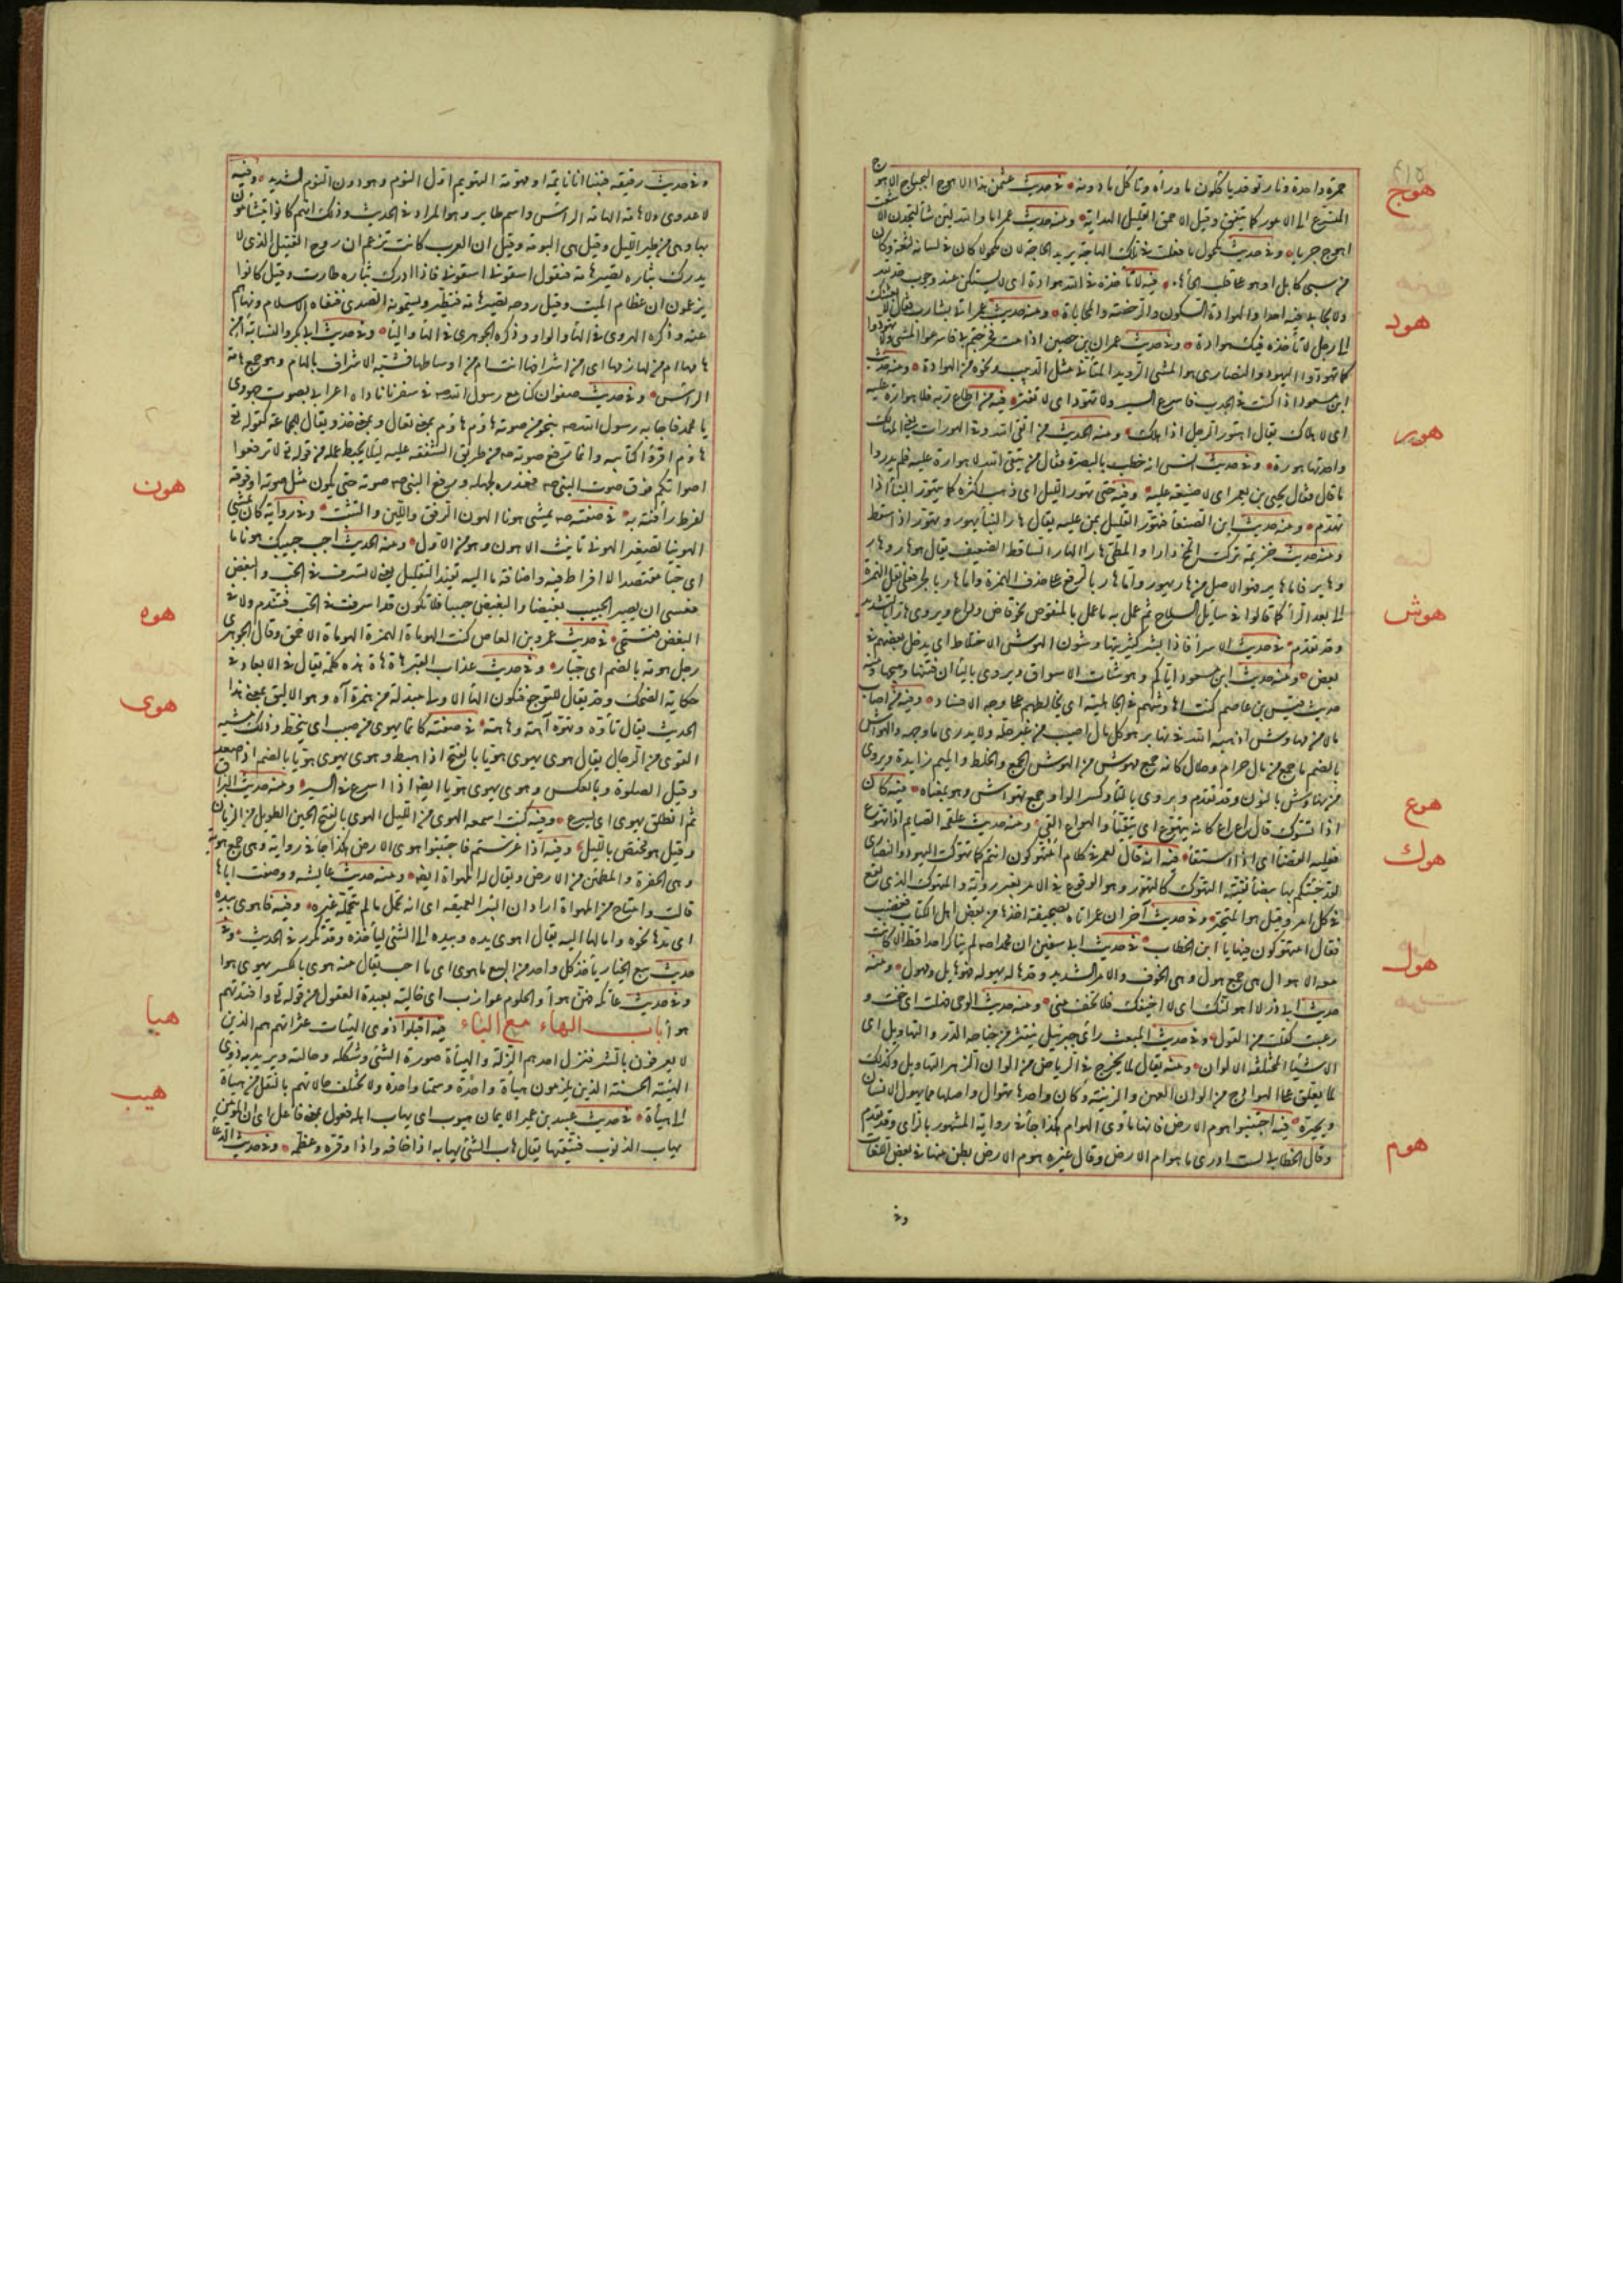 حمرة واحدة ونار توقد ياكلون ما وراه وتاكل ما دونه في حديث عثمن هذا الاهوج البجباج الاهوج
هوج
المتسرع الى الامور كما يتفق وقيل الاحمق القليل الهداية ومنه حديث عمر اما والله لئن شا لتجدن الا
اهوج جريا وفي حديث مكحول ما فعلت في تلك الهاجة يريد الحاجة لان مكحولا كان في لسانه لثغة وكان
من سبى كابل
فيه لا تاخذه في الله هوادة اى لا يسكن عند وجوب حد لله
هود
ولا يحابى فيه احدا والهوادة السكون والرخصة والمحاباة ومنه حديث عمر اتى بشارب فقال لابعثنك
الى رجل لا تأخذه فيك هوادة وفي حديث عمران بن حصين اذا مت فخرجتم بى فاسرعوا المشى ولا تهودوا
كما تهود اليهود والنصارى هو المشى الرويد المتأنى مثل الدبيب ونحوه من الهوادة ومنه حديث
ابن مسعود اذا كنت في الجدب فاسرع السير ولا تهود اى لا تفتر فيه من اطاع ربه فلا هوارة عليه
هور
اى لا هلاك يقال اهتور الرجل اذا هلك ومنه الحديث من اتقى الله وقى الهورات يعنى المهالك
واحدتها هورة وفي حديث انس انه خطب بالبصرة فقال من يتقى الله لا هوارة عليه فلم يدروا
ما قال فقال يحيى بن يعمر اى لا ضيعة عليه وفيه حتى تهور الليل اى ذهب اكثره كما يتهور البنأ اذا
تهدم ومنه حديث ابن الصبغأ فتهور القليب بمن عليه يقال هار البنأ يهور وتهور اذا سقط
ومنه حديث خزيمة تركت المخ رارا والمطى هارا الهار الساقط الضعيف يقال هو هار وهار
وهاير فاما هاير فهو الاصل من هار يهور واما هار بالرفع فعلى حذف الهمزة واما هار بالجر فعلى نقل الهمزة
الى بعد الرأ كما قالوا في سايل السلاح ثم عمل به ما عمل بالمنقوص نحو قاض وداع ويروى هارا بالتشديد
وقد تقدم في حديث الاسرأ فاذا بشر كثير يتهاوشون الهوش الاختلاط اى يدخل بعضهم في
هوش
بعض ومنه حديث ابن مسعود اياكم وهوشات الاسواق ويروى باليا اى فتنها وهيجها ومنه
حديث قيس بن عاصم كنت اهاوشهم في الجاهلية اى اخالطهم على وجه الافساد وفيه من اصاب
مالا من مهاوش اذهبه الله في نهابر هو كل مال اصيب من غير حله ولا يدرى ما وجهه والهواش
بالضم ما جمع من مال حرام وحلال كانه جمع مهوش من الهوش الجمع والخلط والميم زايدة ويروى
من نهاوش بالنون وقد تقدم ويروى بالتا وكسر الواو جمع تهواش وهو بمعناه فيه كان
هوع
اذا تسوك قال اع اع كانه يتهوع اى يتقيأ والهواع القى ومنه حديث علقمة الصايم اذا تهوع
فعليه القضأ اى اذا استقأ فيه انه قال لعمر في كلام امتهوكون انتم كما تهوكت اليهود والنصارى
هوك
لقد جئتكم بها بيضأ نقية التهوك كالتهور وهو الوقوع في الامر بغير روية والمتهوك الذى يقع
في كل امر وقيل هو المتحير وفي حديث آخر ان عمر اتاه بصحيفة اخذها من بعض اهل الكتاب فغضب
فقال امتهوكون فيها يا ابن الخطاب في حديث ابى سفين ان محمدا لم يناكر احدا قط الا كانت
هول
معه الاهوال هى جمع هول وهى الخوف والامر الشديد وقد هاله يهوله فهو هايل ومهول ومنه
حديث ابى ذر لا اهولنك اى لا اخيفك فلا تخف منى ومنه حديث الوحى فهلت اى خفت و
رعبت كقلت من القول وفي حديث المبعث رأى جبرئيل ينتثر من جناحه الدر والتهاويل اى
الاشيأ المختلفة الالوان ومنه يقال لما يخرج في الرياض من الوان الزهر التهاويل وكذلك
لما يعلق على الهوادج من الوان العهن والزينة وكان واحدها تهوال واصلها مما يهول الانسان
ويحيره فيه اجتنبوا هوم الارض فانها ماوى الهوام هكذا جأ في رواية المشهور بالزاى وقد تقدم
هوم
وقال الخطابى لست ادرى ما هوام الارض وقال غيره هوم الارض بطن منها في بعض اللغات
وفي
وفي حديث رقيقة فبينا انا نايمة او مهومة التهويم اول النوم وهو دون النوم الشديد وفيه
لا عدوى ولا هامة الهامة الراس واسم طاير وهو المراد في الحديث وذلك انهم كانوا يتشامون
بها وهى من طير الليل وقيل هى البومة وقيل ان العرب كانت تزعم ان روح القتيل الذى لا
يدرك بثاره تصير هامة فتقول اسقونى اسقونى فاذا ادرك بثاره طارت وقيل كانوا
يزعمون ان عظام الميت وقيل روحه تصير هامة فتطير ويسمونه الصدى فنفاه الاسلام ونهاهم
عنه وذكره الهروى في الهأ والواو وذكره الجوهرى في الهأ واليأ وفي حديث ابى بكر والنسابة امن
هامها ام من لهازمها اى من اشرافها انت ام من اوساطها فشبه الاشراف بالهام وهو جمع هامة
الراس وفي حديث صفوان كنا مع رسول الله صه في سفر ناداه اعرابى بصوت جهورى
يا محمد فاجابه رسول الله صه بنحو من صوته هاؤم هاؤم بمعنى تعال وبمعنى خذ ويقال للجماعة كقوله تع
هاؤم اقرؤا كتابيه وانما رفع صوته صه من طريق الشفقة عليه ليلا يحبط عمله من قوله تع لا ترفعوا
اصواتكم فوق صوت النبى صه فعذره بجهله ورفع النبى صه صوته حتى يكون مثل صوته او فوقه
لفرط رأفته به في صفته صه يمشى هونا الهون الرفق واللين والتثبت وفي رواية كان يمشى
هون
الهوينا تصغير الهونى تانيث الاهون وهو من الاول ومنه الحديث احبب حبيبك هونا ما
اى حبا مقتصدا لا افراط فيه واضافة ما اليه تفيد التقليل يعنى لا تسرف في الحب والبغض
فعسى ان يصير الحبيب بغيضا والبغيض حبيبا فلا تكون قد اسرفت في الحب فتندم ولا في
البغض فتستحى في حديث عمرو بن العاص كنت الهوهاة الهمزة الهوهاة الاحمق وقال الجوهرى
هوه
رجل هوهة بالضم اى جبان وفي حديث عذاب القبر هاه هاه هذه كلمة تقال في الابعاد وفي
حكاية الضحك وقد يقال للتوجع فتكون الهأ الاولى مبدلة من همزة آه وهو الاليق بمعنى هذا
الحديث يقال تأوه وتهوه آهة وهاهة في صفته كانما يهوى من صبب اى ينحط وذلك مشية
هوى
القوى من الرجال يقال هوى يهوى هويا بالفتح اذا هبط وهوى يهوى هويا بالضم اذا صعد
وقيل الصلوة وبالعكس وهوى يهوى هويا ايضا اذا اسرع في السير ومنه حديث البراق
ثم انطلق يهوى اى يسرع وفيه كنت اسمعه الهوى من الليل الهوى بالفتح الحين الطويل من الزمان
وقيل هو مختص بالليل وفيه اذا عرستم فاجتنبوا هوى الارض هكذا جأ في رواية وهى جمع هوة
وهى الحفرة والمطمئن من الارض ويقال لها المهواة ايضا ومنه حديث عايشه ووصفت اباها
قالت وامتاح من المهواة ارادت البئر العميقة اى انه تحمل ما لم يتحمله غيره وفيه فاهوى بيده
اى مدها نحوه وامالها اليه يقال اهوى يده وبيده الى الشئ ليأخذه وقد تكرر في الحديث وفي
حديث بيع الخيار يأخذ كل واحد من البيع ما هوى اى ما احب يقال منه هوى بالكسر يهوى هوا
وفي حديث عاتكة فهن هوأ والحلوم عوازب اى خالية بعيدة العقول من قوله تع وافئدتهم
هوأ باب الهاء مع الياء فيه اقيلوا ذوى الهيئات عثراتهم هم الذين
هيا
لا يعرفون بالشر فيزل احدهم الزلة والهيأة صورة الشئ وشكله وحالته ويريد به ذوى
الهيئة الحسنة الذين يلزمون هيأة واحدة وسمتا واحدة ولا تختلف حالاتهم بالتنقل من هيأة
الى هيأة في حديث عبيد بن عمير الايمان هيوب اى يهاب اهله فعول بمعنى مفعول
هيب
يهاب الذنوب فيتقيها يقال هاب الشئ يهابه اذا خافه واذا وقره وعظمه وفي حديث الدعا